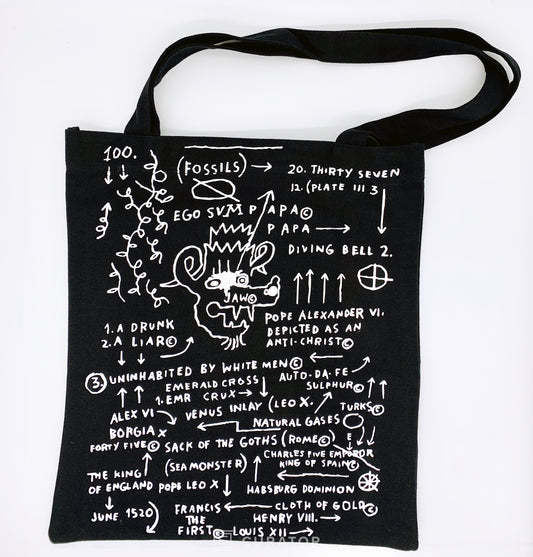 100.
(FOSSILS) → 20. THIRTY SEVEN
12. (PLATE III 3
EGO SVM PAPA©
PAPA →
DIVING BELL 2.
JAW©
POPE ALEXANDER VI.
DEPICTED AS AN
ANTI-CHRIST©
1. A DRUNK
2. A LIAR©
③ UNINHABITED BY WHITE MEN© ←
AUTO-DA-FE
EMERALD CROSS
SULPHUR©
1. EMR CRUX →
VENUS INLAY (LEO X.
TURKS©
ALEX VI
BORGIA X
NATURAL GASES
E
FORTY FIVE© SACK OF THE GOTHS (ROME©)
CHARLES FIVE EMPEROR
KING OF SPAIN©
(SEA MONSTER)
THE KING
OF ENGLAND POPE LEO X
HABSBURG DOMINION
JUNE 1520
FRANCIS ← CLOTH OF GOLD©
THE HENRY VIII. →
FIRST© LOUIS XII →
CURATOR